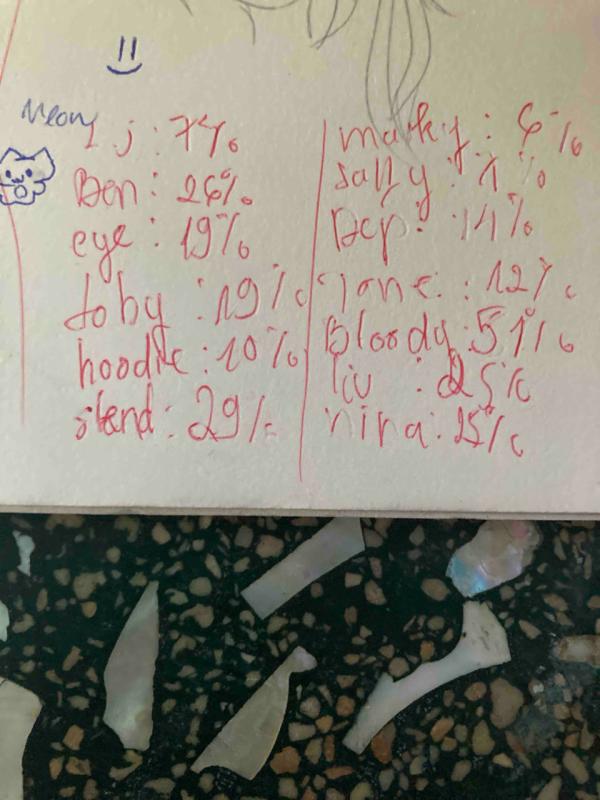 Meow
Ben : 26%
eye : 19%
toby : 19%
hoodie : 10%
slend : 29%
masky : 6%
sally : 1%
Dcp : 14%
Jane : 12%
Bloody : 51%
liu : 25%
nina : 25%